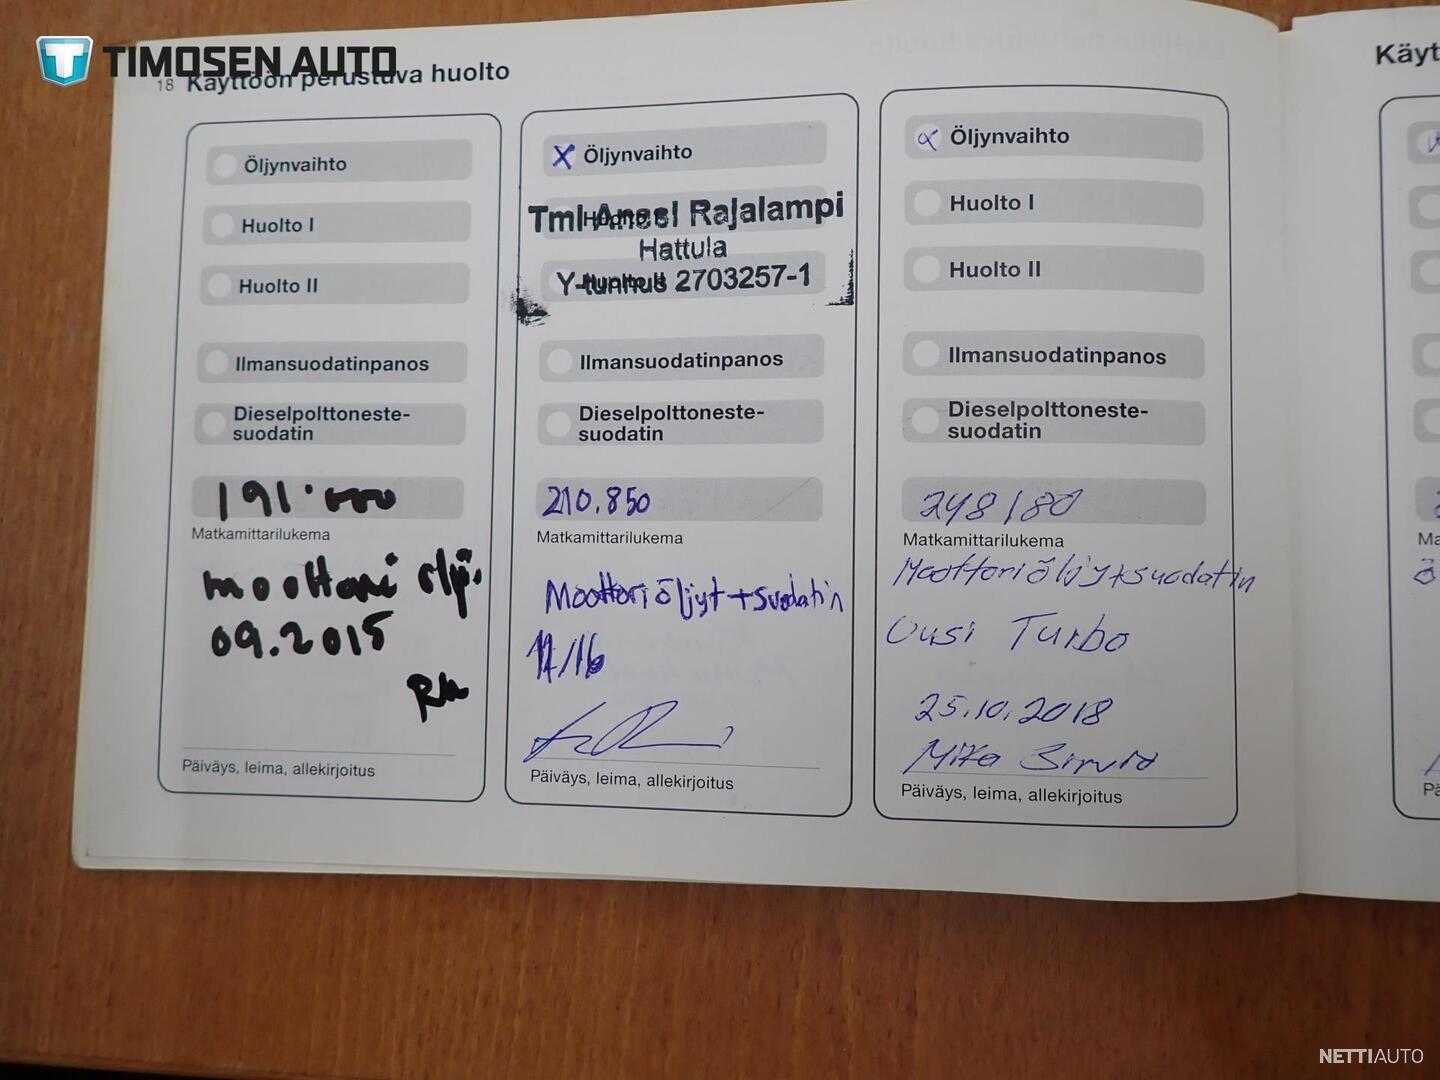 TIMOSEN AUTO
18 Käyttöön perustuva huolto
Öljynvaihto
Huolto I
Huolto II
Ilmansuodatinpanos
Dieselpolttoneste-
suodatin
191.000
Matkamittarilukema
moottori öljy.
09.2015
Päiväys, leima, allekirjoitus
X Öljynvaihto
Tmi Anssi Rajalampi
Hattula
Y-tunnus 2703257-1
Ilmansuodatinpanos
Dieselpolttoneste-
suodatin
210.850
Matkamittarilukema
Moottoriöljyt+suodatin
11/16
Päiväys, leima, allekirjoitus
Öljynvaihto
Huolto I
Huolto II
Ilmansuodatinpanos
Dieselpolttoneste-
suodatin
248180
Matkamittarilukema
Moottoriöljyt+suodatin
Uusi Turbo
25.10.2018
Mika
Päiväys, leima, allekirjoitus
Käyt
Ma
Pä
NETTIAUTO